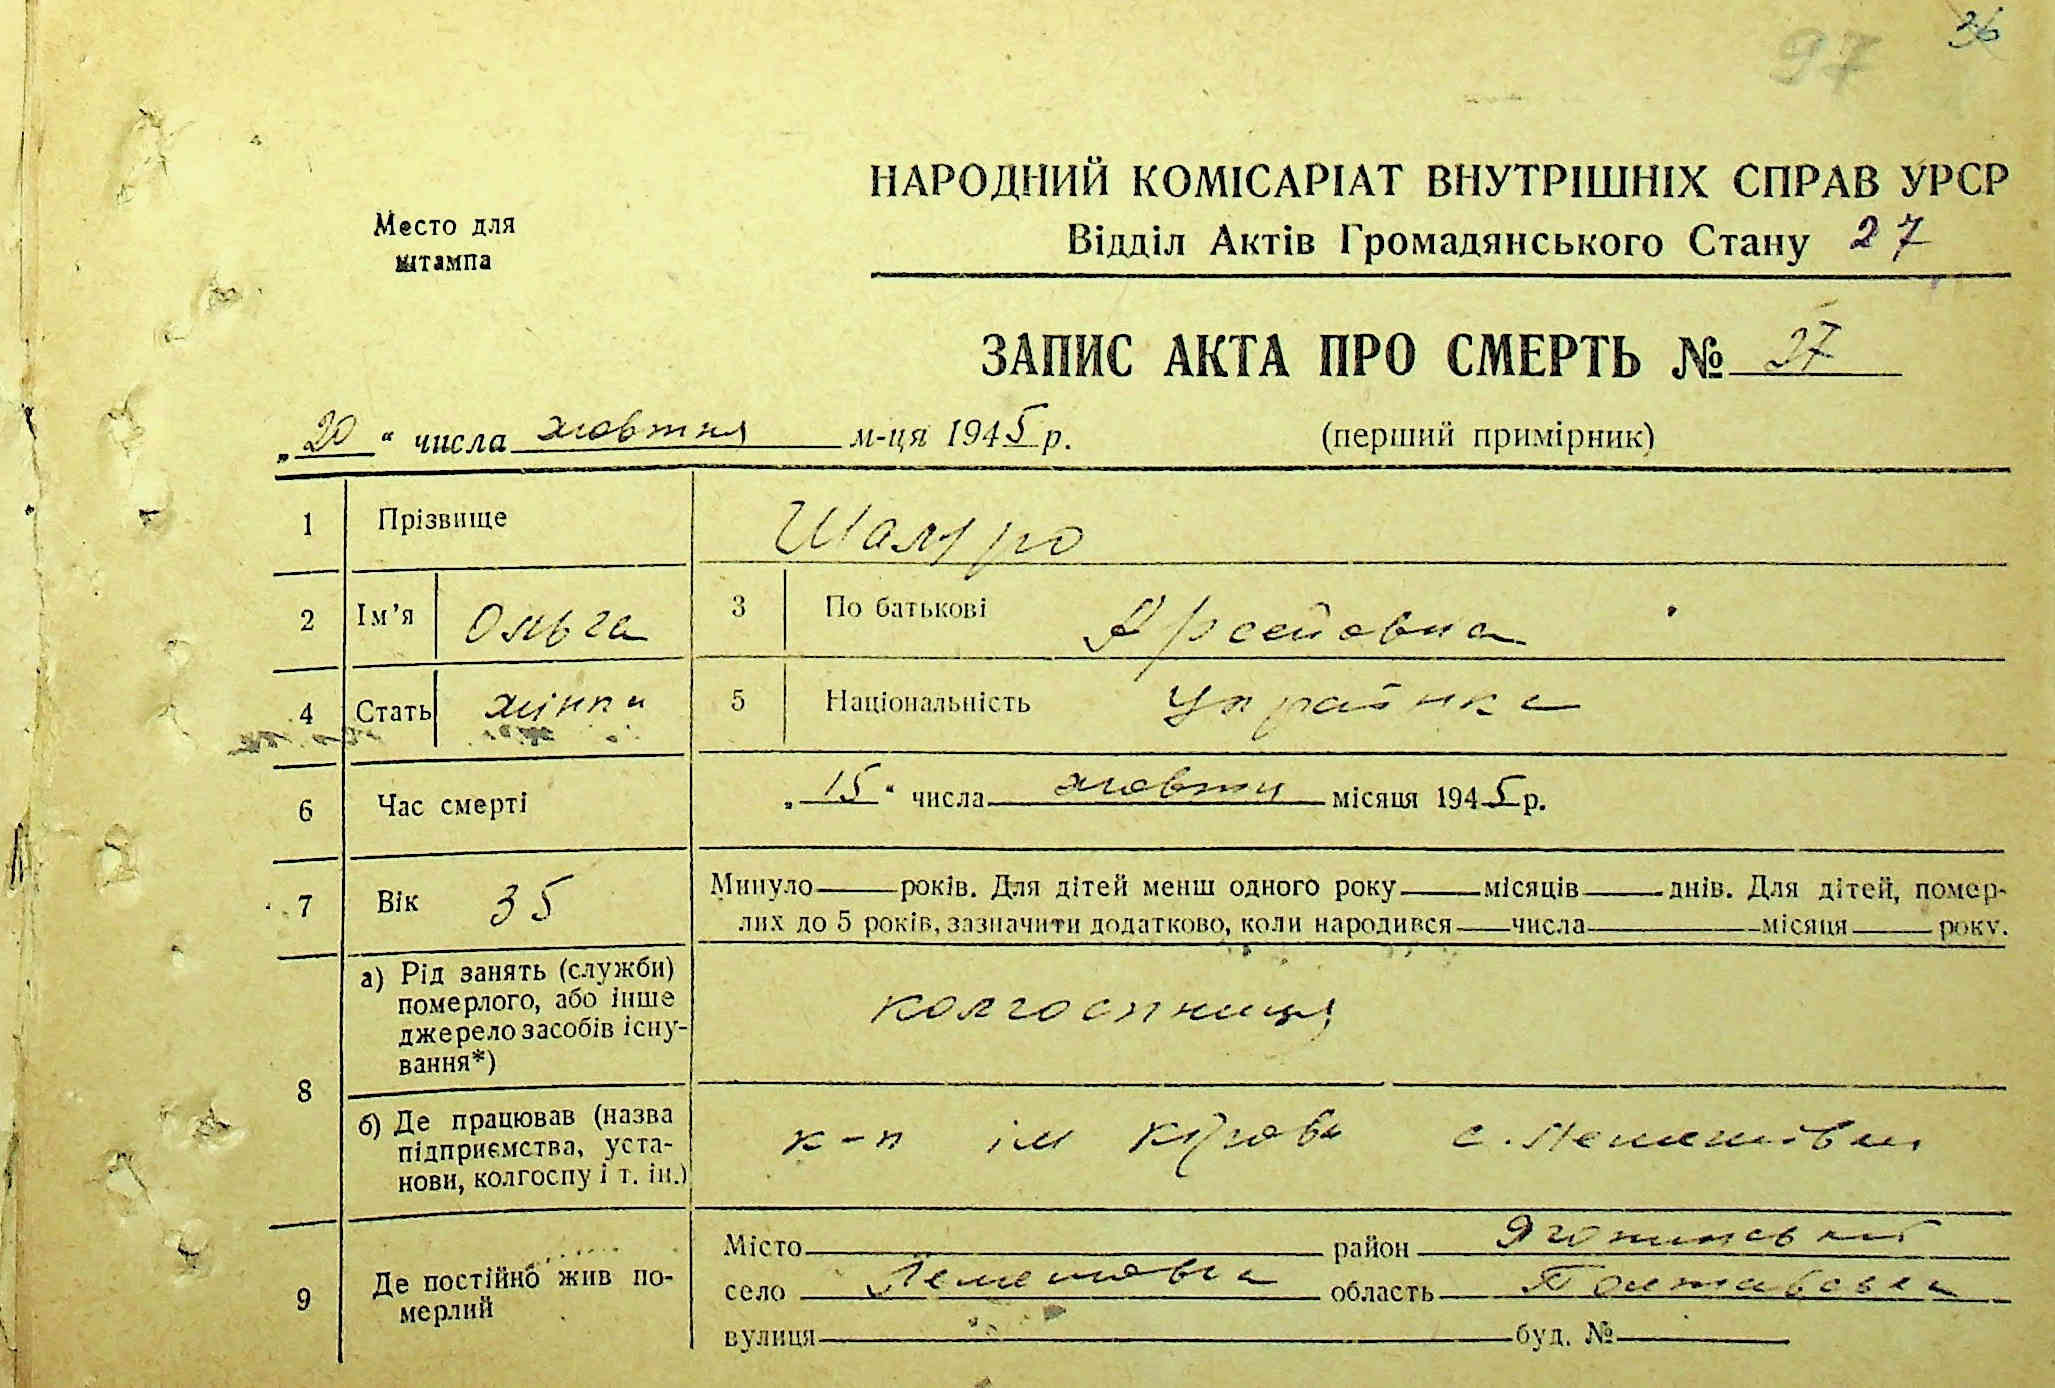 36
97
НАРОДНИЙ КОМІСАРІАТ ВНУТРІШНІХ СПРАВ УРСР
Место для штампа
Відділ Актів Громадянського Стану 27
ЗАПИС АКТА ПРО СМЕРТЬ № 27
„20“ числа жовтня м-ця 1945 р.
(перший примірник)
1 Прізвище
2 Ім'я Ольга 3 По батькові
4 Стать жінки 5 Національність Українка
6 Час смерті „15“ числа жовтня місяця 1945 р.
7 Вік 35 Минуло років. Для дітей менш одного року місяців днів. Для дітей, помер-
лих до 5 років, зазначити додатково, коли народився числа місяця року.
8 а) Рід занять (служби)
померлого, або інше
джерело засобів існу-
вання*)
колгоспниця
б) Де працював (назва
підприємства, уста-
нови, колгоспу і т. ін.)
к-п ім Кірова с.
9 Де постійно жив по-
мерлий
Місто район Яготинський
село область Полтавська
вулиця буд. №